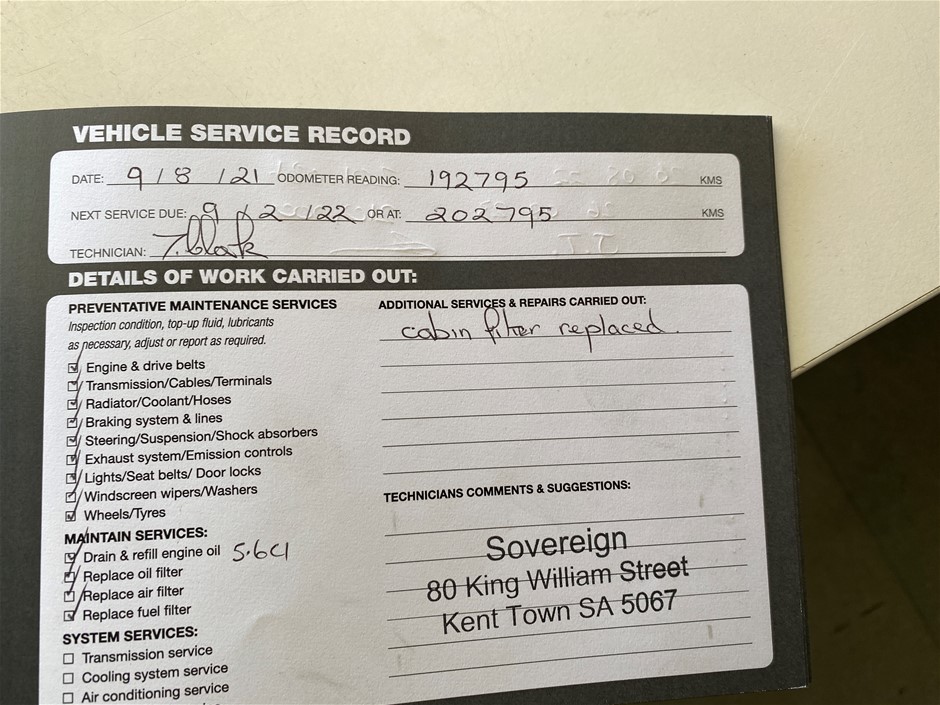 VEHICLE SERVICE RECORD
DATE: 9 / 8 / 21 ODOMETER READING: 192795 KMS
NEXT SERVICE DUE: 9 / 2 / 22 OR AT: 202795 KMS
TECHNICIAN:
DETAILS OF WORK CARRIED OUT:
PREVENTATIVE MAINTENANCE SERVICES
Inspection condition, top-up fluid, lubricants
as necessary, adjust or report as required.
Engine & drive belts
Transmission/Cables/Terminals
Radiator/Coolant/Hoses
Braking system & lines
Steering/Suspension/Shock absorbers
Exhaust system/Emission controls
Lights/Seat belts/ Door locks
Windscreen wipers/Washers
Wheels/Tyres
MAINTAIN SERVICES:
Drain & refill engine oil
Replace oil filter
Replace air filter
Replace fuel filter
SYSTEM SERVICES:
Transmission service
Cooling system service
Air conditioning service
ADDITIONAL SERVICES & REPAIRS CARRIED OUT:
cabin filter replaced.
TECHNICIANS COMMENTS & SUGGESTIONS:
Sovereign
80 King William Street
Kent Town SA 5067